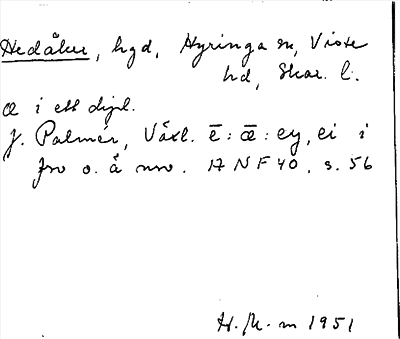 Hedåker, hgd, Hyringa sn, Viste
hd, Skar. l.
æ i ett dipl.
J. Palmér, Växl. ē : ǣ : ey, ei i
fno o. å nno. ANF 40, s. 56
H. M-m 1951